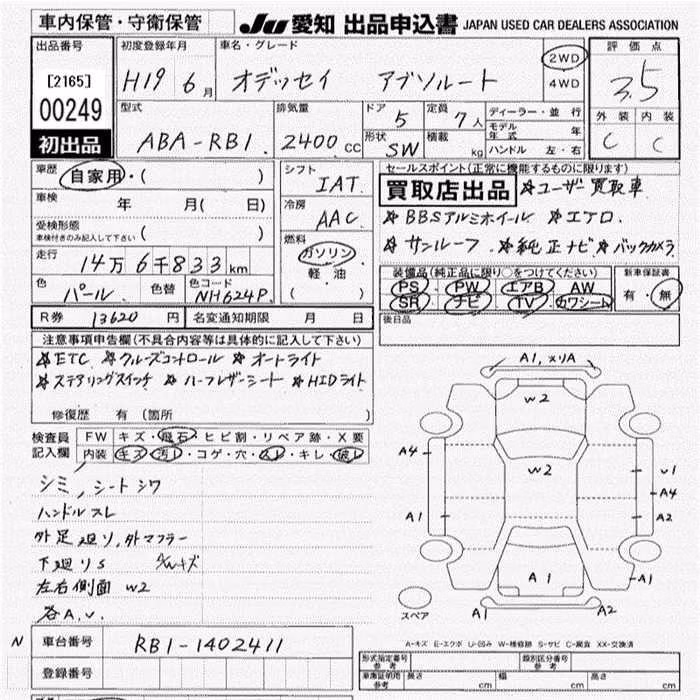 車内保管・守衛保管
JU 愛知 出品申込書 JAPAN USED CAR DEALERS ASSOCIATION
出品番号
[2165]
00249
初出品
初度登録年月
H19 6月
車名・グレード
オデッセイ アブソルート
2WD
4WD
評価点
3.5
外装 内装
C C
型式
ABA-RB1.
排気量
2400 CC
ドア 5
定員 7人
形状 SW
積載 kg
ディーラー・並行
モデル年式 年
ハンドル 左・右
車歴 自家用・( )
車検 年 月( 日)
受検形態
車検付きのみ記入して下さい ( )
走行
14万6千833km
色 パール
色替
色コード NH624P
シフト
IAT.
冷房
AAC
燃料
ガソリン
軽・油
( )
セールスポイント(正常に機能するものに限ります)
買取店出品 ☆ユーザー買取車
☆BBSアルミホイール ☆エアロ.
☆サンルーフ ☆純正ナビ ☆バックカメラ
装備品(純正品に限り○をつけてください)
PS PW エアB AW
SR ナビ TV カワシート
新車保証書
有・無
後日品
R券 13620円
名変通知期限 月 日
注意事項申告欄(不具合内容等は具体的に記入して下さい)
☆ETC ☆クルーズコントロール ☆オートライト
☆ステアリングスイッチ ☆ハーフレザーシート ☆HIDライト
修復歴 有 (箇所 )
検査員
記入欄
FW キズ・飛石・ヒビ割・リペア跡・X要
内装 キズ・汚レ・コゲ・穴・スレ・キレ・破レ
シミ、シートシワ
ハンドルスレ
外足廻り,外マフラー
下廻りS
左右側面 W2
各A.U.
A1,メリA
W2
A4
W2
U1
A4
A1
A2
A1
A1
A1
A2
スペア
A-キズ E-エクボ U-凹み W-補修跡 S-サビ C-腐食 XX-交換済
N
車台番号 RB1-1402411
登録番号
形式指定番号
参考
類別区分番号
参考
車庫証明用
参考
長さ cm
幅 cm
高さ cm